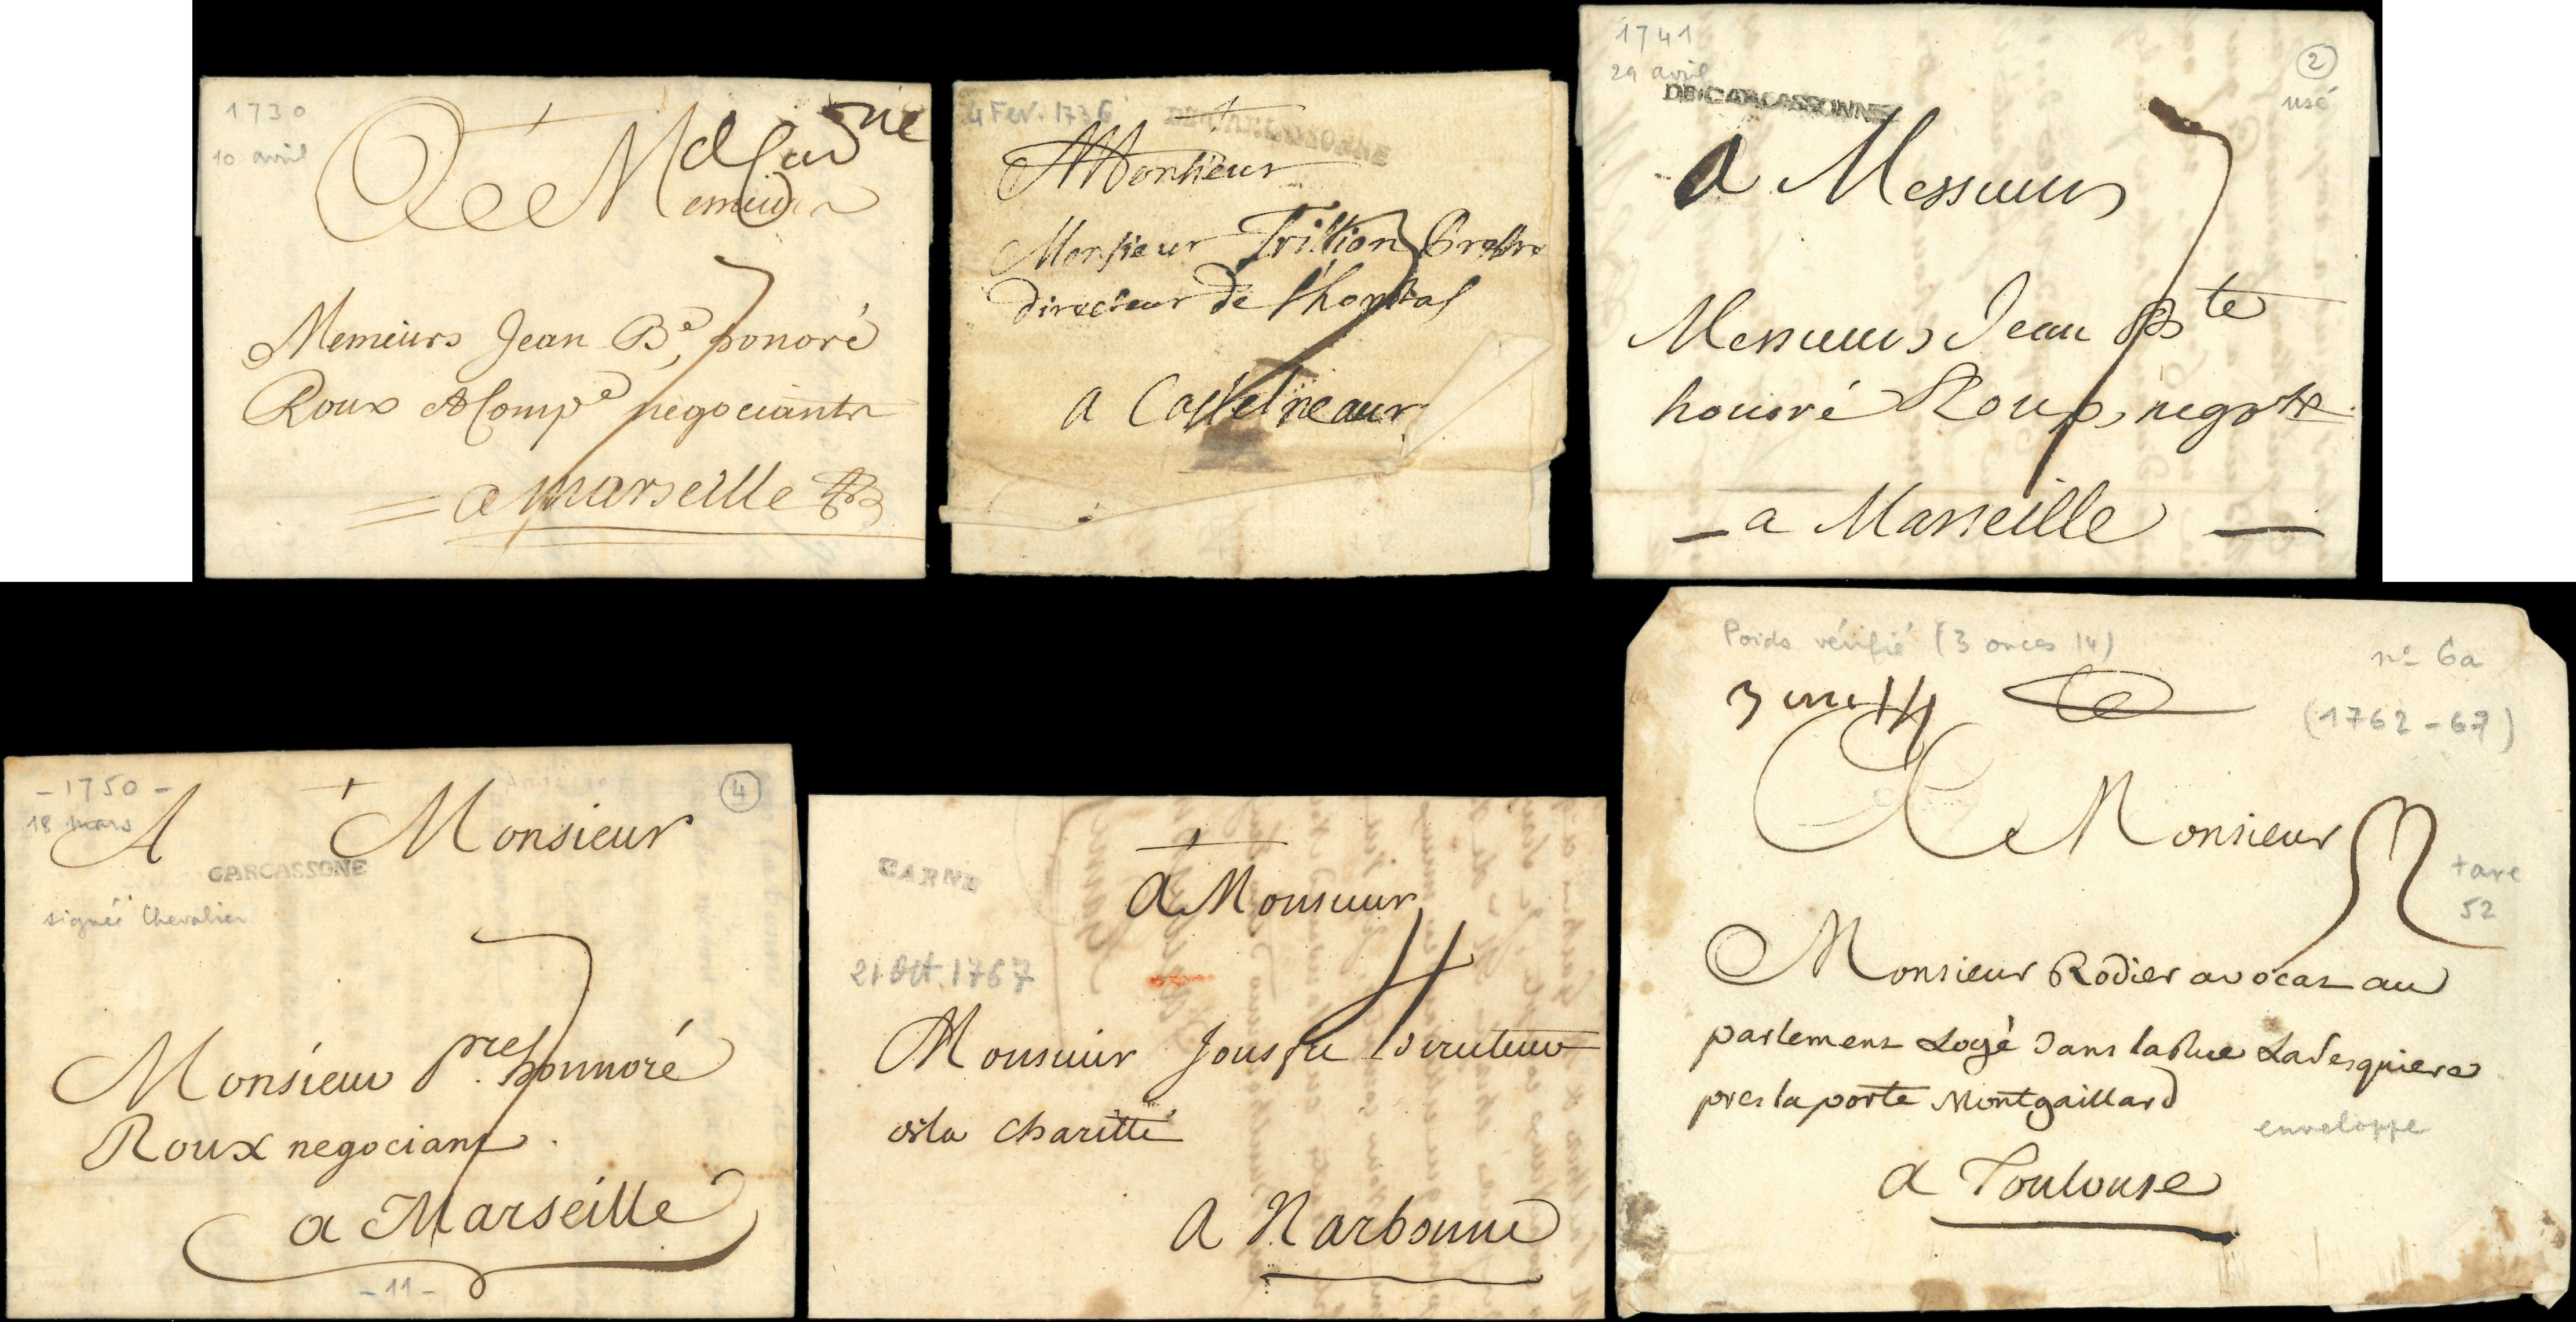 1730
10 avril
A Messieurs
Messieurs Jean B.e honoré
Roux & Compe negociants
a Marseille
4 Fev. 1736
DE CARCASSONNE
Monsieur
Monsieur
directeur de l'hopital
a Castelneau
1741
29 avril
2
usé
DE CARCASSONNE
7
a Messieurs
Messieurs Jean Bte
honoré Roux, negots
a Marseille
- 1750 -
18 mars
4
A Monsieur
CARCASSONE
signée Chevalier
7
Monsieur pre honnoré
Roux negociant
a Marseille
- 11 -
CARNE
a Monsieur
21 Oct. 1767
4
Monsieur
de la Charitté
a Narbonne
Poids vérifié (3 onces 14)
n° 6a
(1762-67)
A Monsieur
taxe
52
Monsieur Rodier avocat au
parlement Logé dans la Rue
pres la porte Montgaillard
enveloppe
a Toulouse